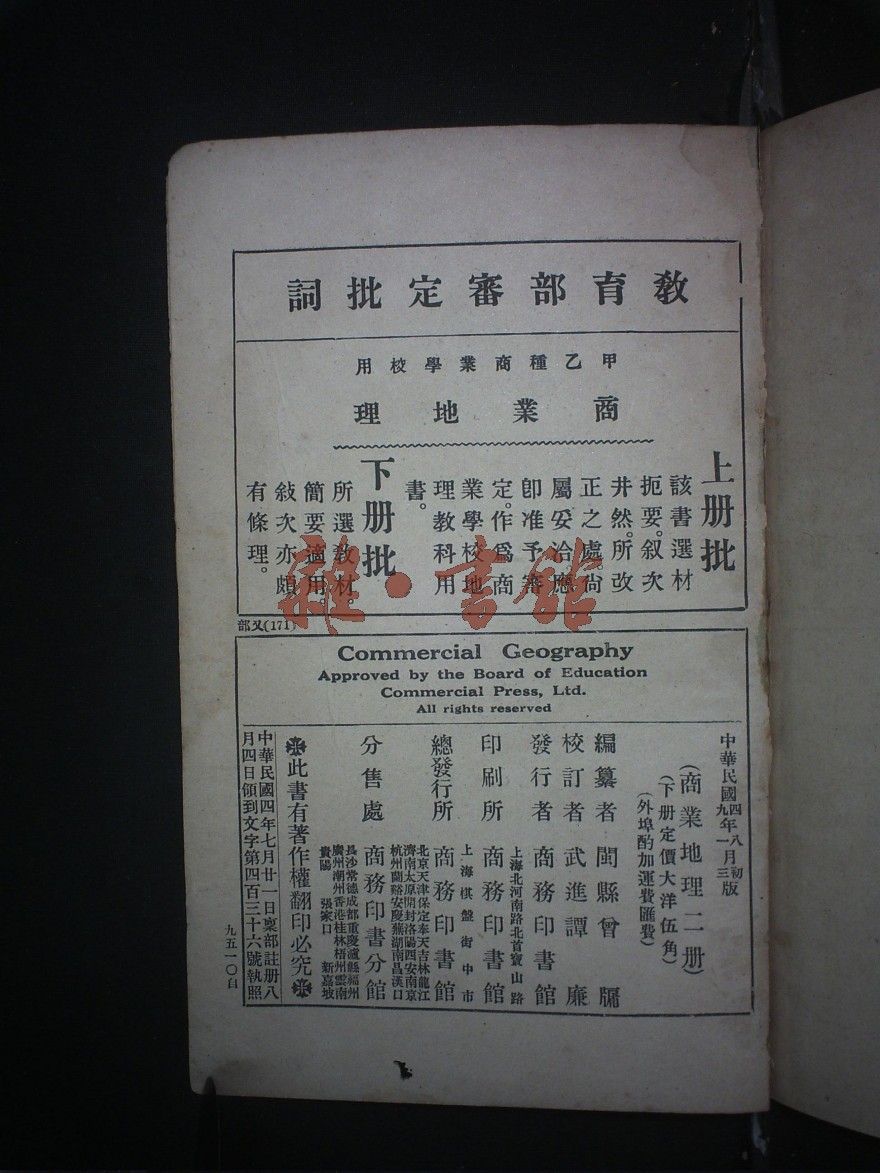 教育部審定批詞
甲乙種商業學校用
商業地理
上册批
該書選材
扼要。敍次
井然。所改
正之處。尚
屬妥洽。應
卽准予審
定。作爲商
業學校地
理教科用
書。
下册批
所選教材。
簡要適用。
敍次亦頗
有條理。
雜·書館
部又(171)
Commercial Geography
Approved by the Board of Education
Commercial Press, Ltd.
All rights reserved
中華民國四年八月初版
九年一月三版
(商業地理二册)
(下册定價大洋伍角)
(外埠酌加運費匯費)
編纂者 閩縣曾牖
校訂者 武進譚廉
發行者 商務印書館
上海北河南路北首寶山路
印刷所 商務印書館
上海棋盤街中市
總發行所 商務印書館
北京天津保定奉天吉林龍江
濟南太原開封洛陽西安南京
杭州蘭谿安慶蕪湖南昌漢口
分售處 商務印書分館
長沙常德成都重慶瀘縣福州
廣州潮州香港桂林梧州雲南
貴陽 張家口 新嘉坡
此書有著作權翻印必究
中華民國四年七月廿一日稟部註册八
月四日領到文字第四百三十六號執照
九五一〇自